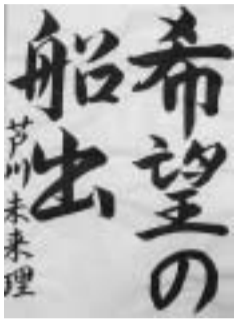 希望の
船出
芦川未来理